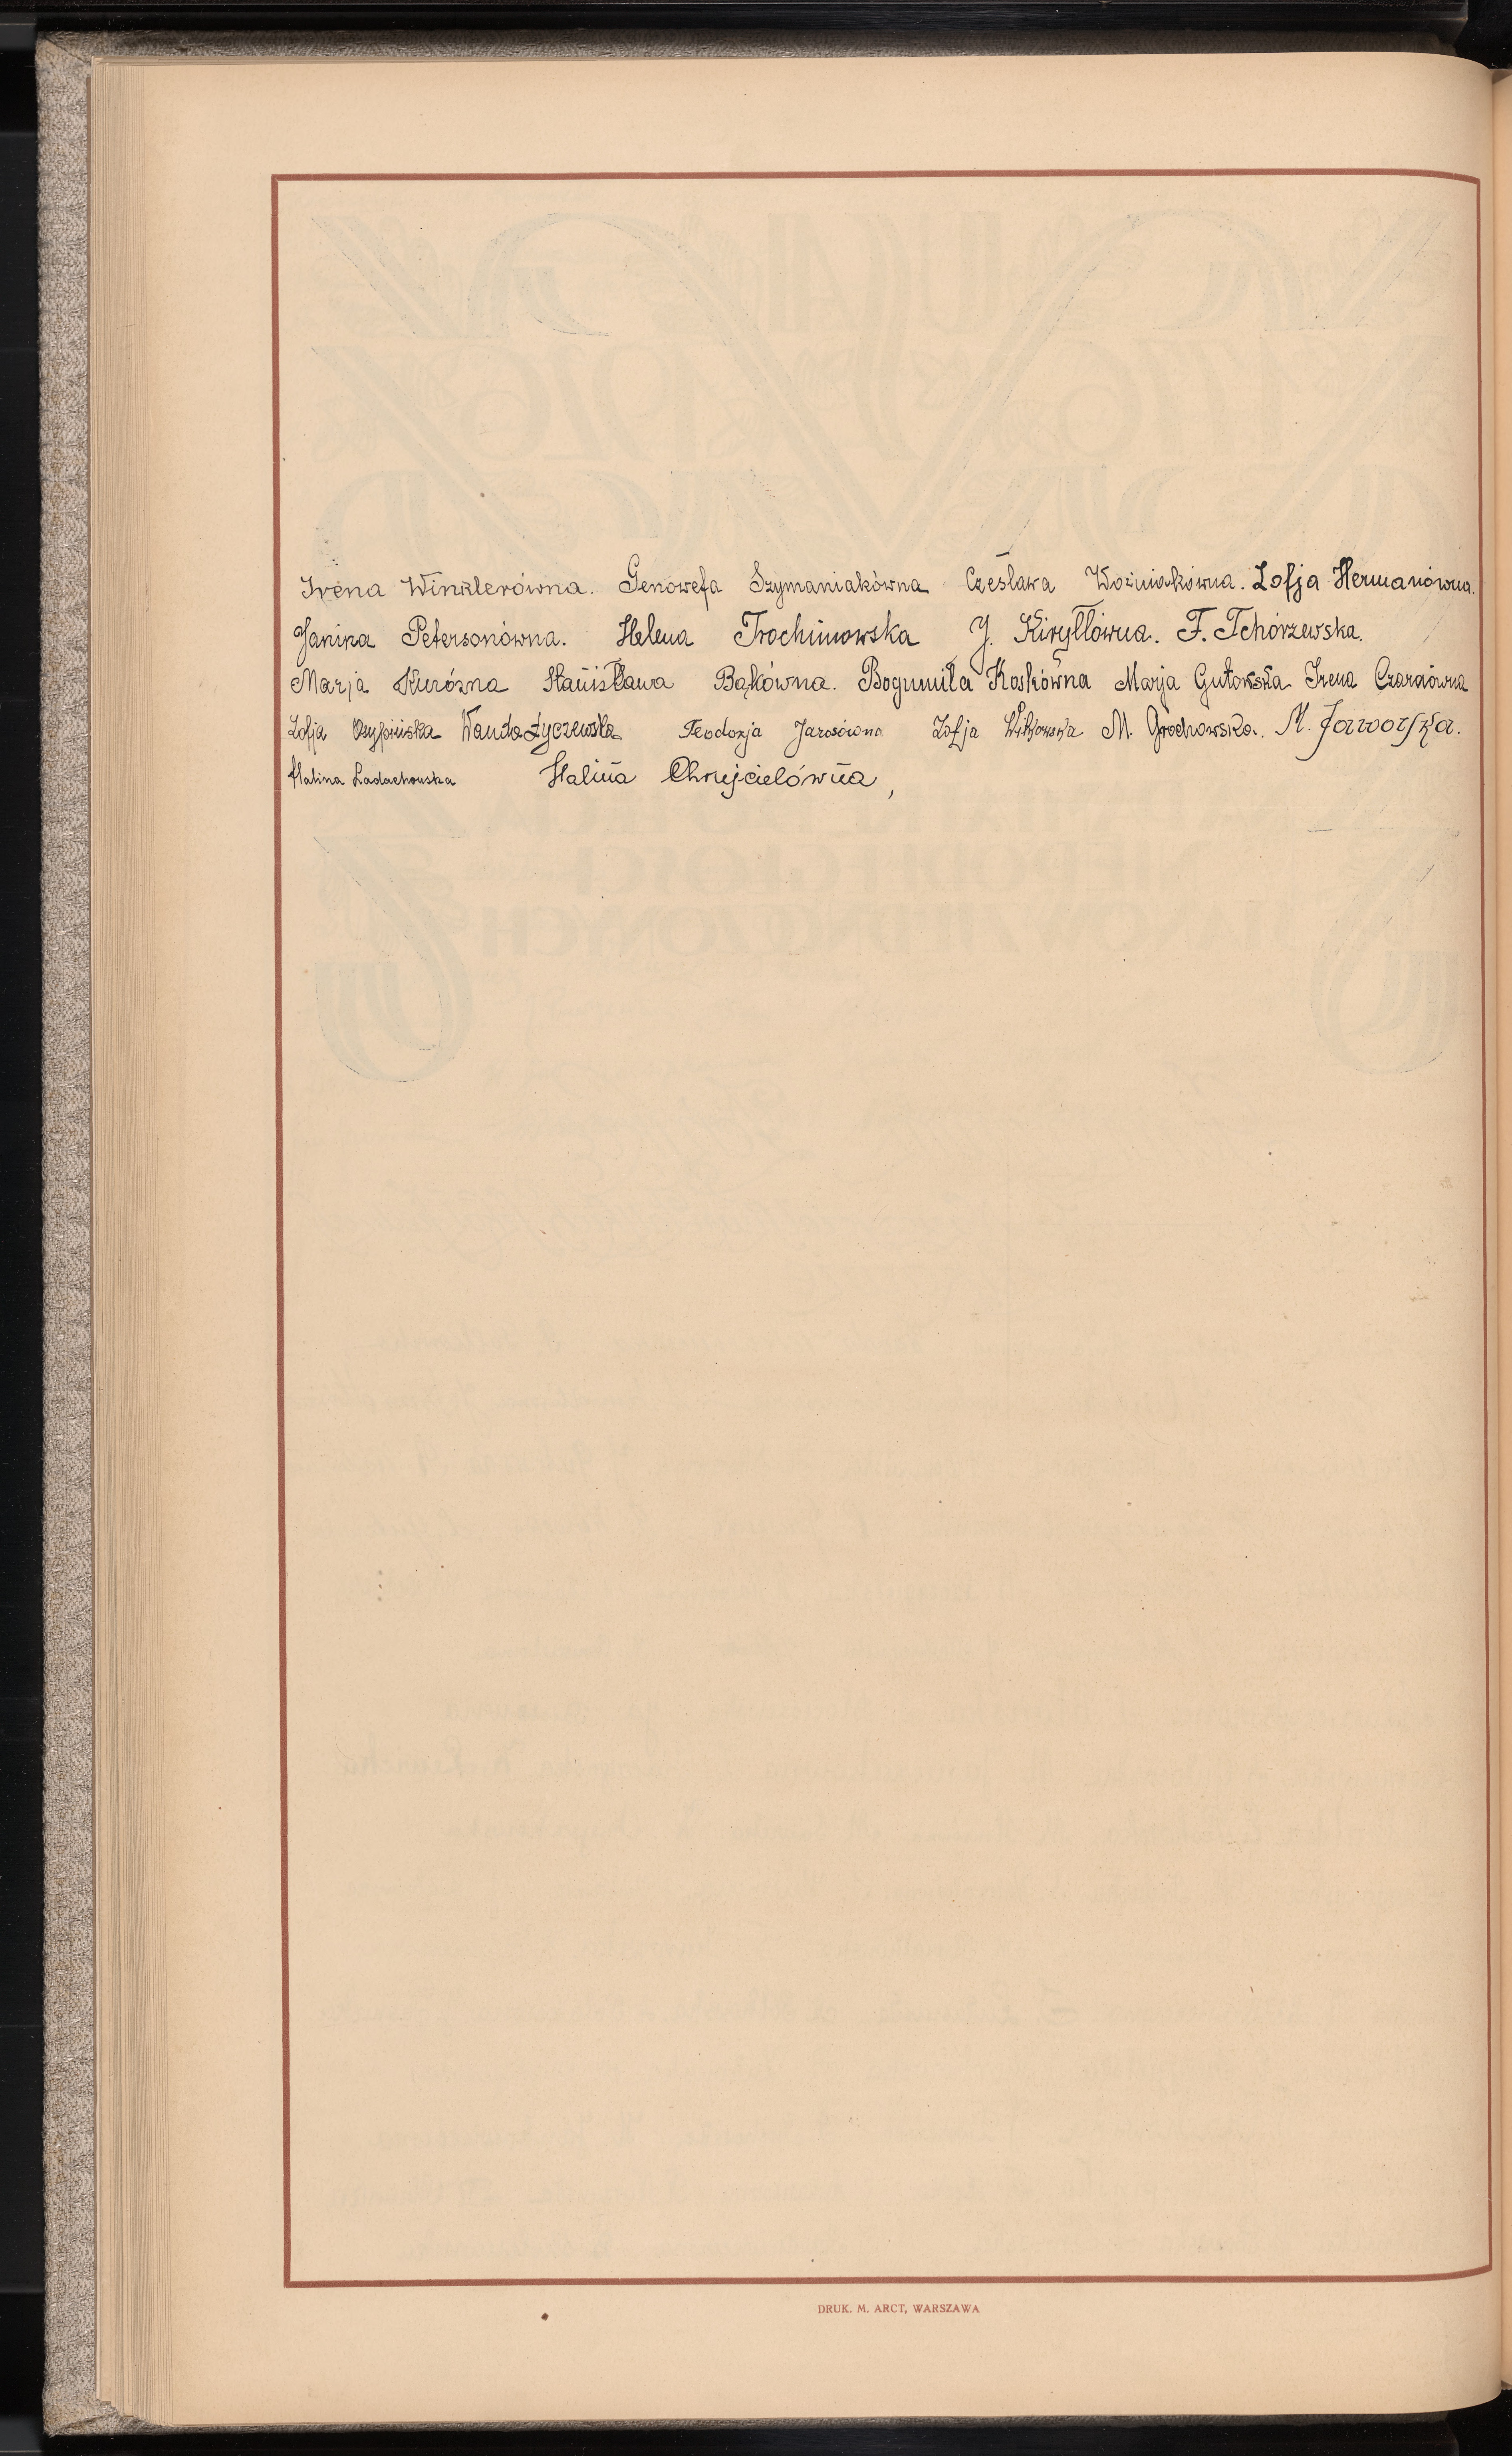 Irena Winklerówna. Genowefa Szymaniakówna Czesława Woźniakówna. Zofja Hermanówna.
Janina Petersonówna. Helena Trochimowska J. Kiryłłówna. F. Tchórzewska.
Marja Stanisława Bąkówna. Bogumiła Koskówna Marja Gutowska Irena
Zofja Osypińska Wanda Życzewska Teodozja Jarosówna Zofja Witkowska M. Grochowska. M. Jaworska.
Halina Ladachowska Halina
DRUK. M. ARCT, WARSZAWA